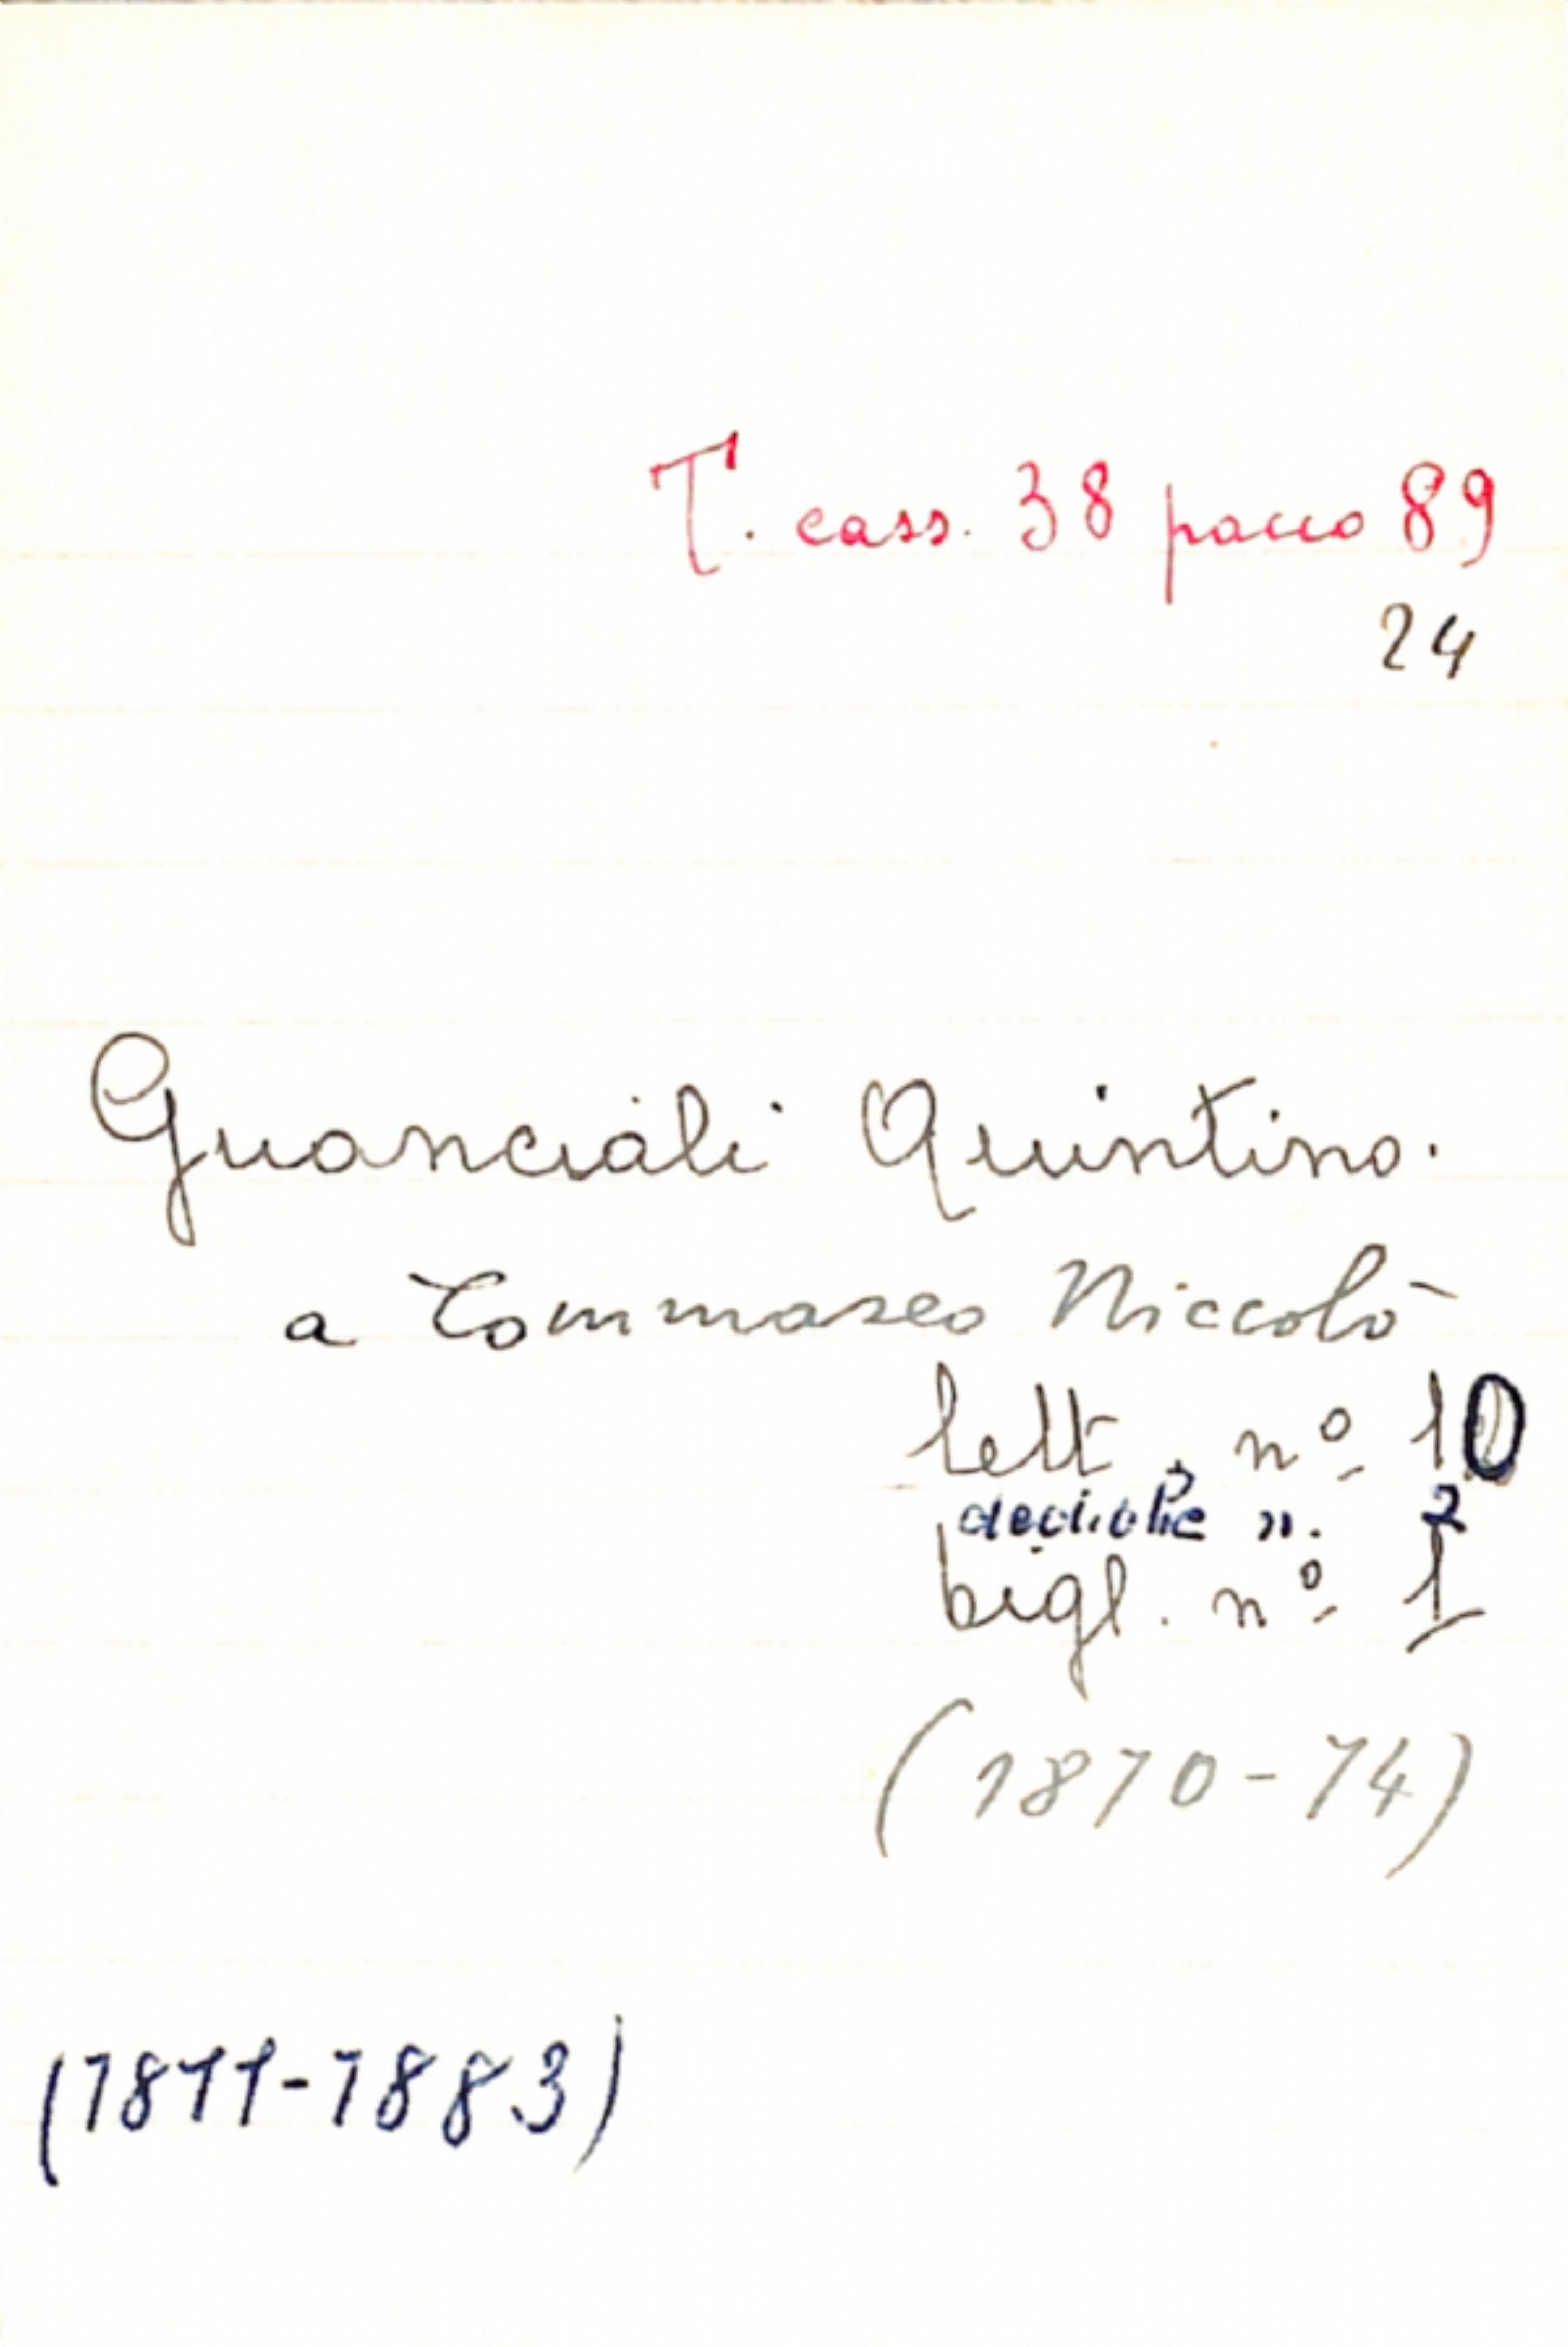 T. cass. 38 pacco 89
24
Guanciali Quintino.
a Tommaseo Niccolò
lett. nº 10
dediche n. 2
bigl. nº 1
(1870-74)
(1811-1883)